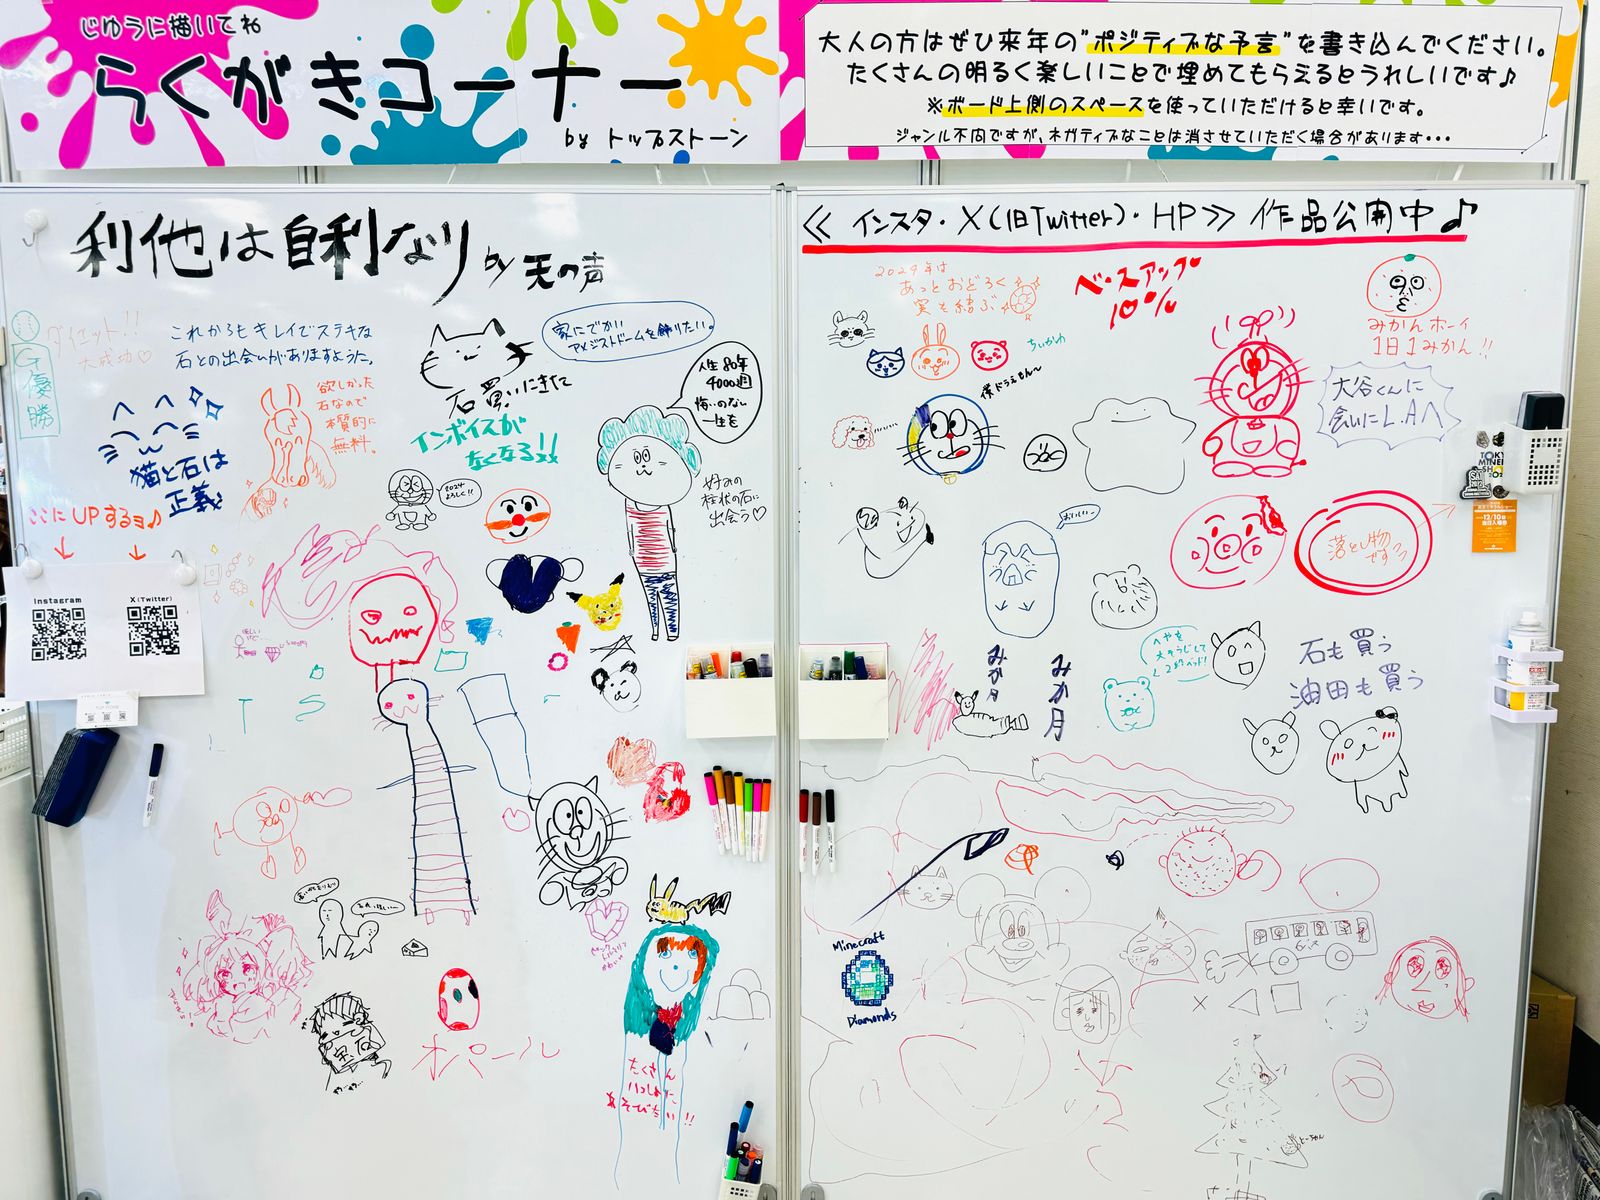 じゆうに描いてね
らくがきコーナー
by トップストーン
大人の方はぜひ来年の"ポジティブな予言"を書き込んでください。
たくさんの明るく楽しいことで埋めてもらえるとうれしいです♪
※ボード上側のスペースを使っていただけると幸いです。
ジャンル不問ですが、ネガティブなことは消させていただく場合があります・・・
利他は自利なり by 天の声
ダイエット!!
大成功♡
優勝
これからもキレイでステキな
石との出会いがありますように。
家にでかい
アメジストドームを飾りたい。
人生80年
4000週
悔いのない
一生を
石買いにきた
インボイスが
なくなる!!
欲しかった
石なので
本質的に
無料。
猫と石は
正義
2024
よろしく!!
好みの
柱状の石に
出会う♡
ここにUPするヨ♪
Instagram
X(Twitter)
T S
宝石
オパール
たくさん
いっしょに
あそびたい!!
≪ インスタ・X(旧Twitter)・HP≫ 作品公開中♪
2024年は
あっとおどろく
実を結ぶ
ベースアップ
10%
みかんボーイ
1日1みかん!!
ちいかわ
僕ドラえもん〜
大谷くんに
会いにL.Aへ
おいしい〜
落とし物
です
12/10
へやを
大そうじして
2段ベッド!
みか月
みか月
石も買う
油田も買う
Minecraft
Diamonds
バス